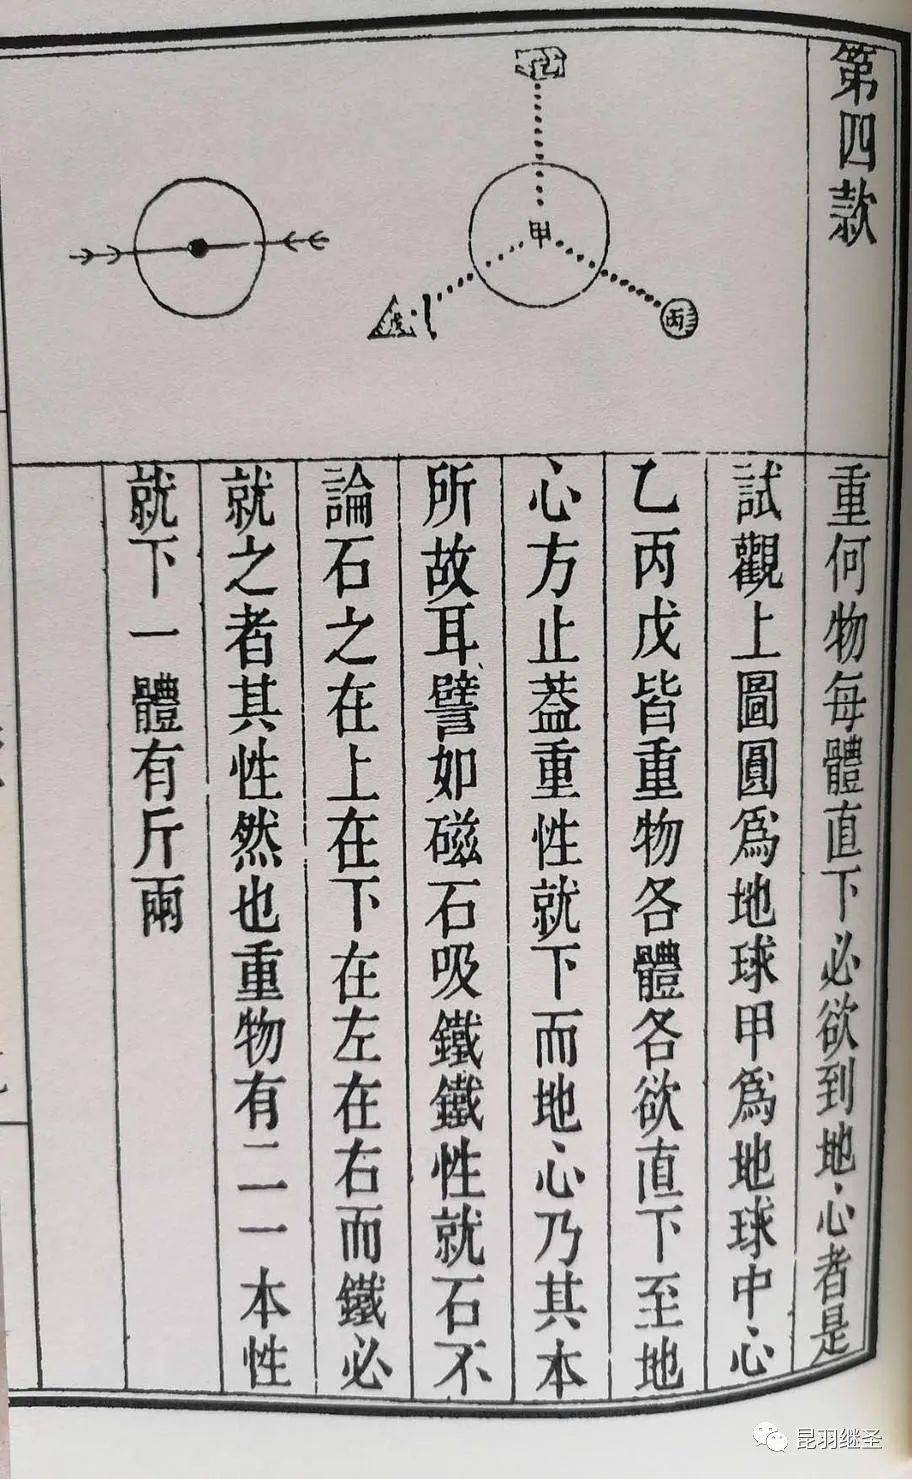 第四款
重何物每體直下必欲到地心者是
試觀上圖圓爲地球甲爲地球中心
乙丙戊皆重物各體各欲直下至地
心方止葢重性就下而地心乃其本
所故耳譬如磁石吸鐵鐵性就石不
論石之在上在下在左在右而鐵必
就之者其性然也重物有二一本性
就下一體有斤兩
甲
丙
戊
昆羽继圣